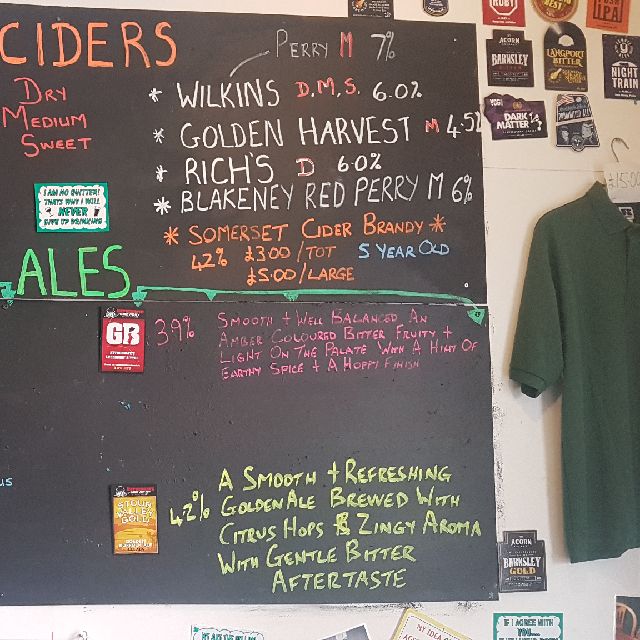 CIDERS
PERRY M 7%
DRY
MEDIUM
SWEET
* WILKINS D, M, S. 6.0%
* GOLDEN HARVEST M 4.5%
* RICH'S D 6.0%
* BLAKENEY RED PERRY M 6%
I AM NO QUITTER!
THATS WHY I WILL
NEVER
GIVE UP DRINKING
* SOMERSET CIDER BRANDY *
42% £3.00/TOT 5 YEAR OLD
£5.00/LARGE
ALES
GB
3.9%
SMOOTH + WELL BALANCED AN
AMBER COLOURED BITTER FRUITY +
LIGHT ON THE PALATE WITH A HINT OF
EARTHY SPICE + A HOPPY FINISH
STOUR
VALLEY
GOLD
4.2%
A SMOOTH + REFRESHING
GOLDEN ALE BREWED WITH
CITRUS HOPS & ZINGY AROMA
WITH GENTLE BITTER
AFTERTASTE
RUBY
IPA
ACORN
BARNSLEY
BITTER
LANGPORT
BITTER
NIGHT
TRAIN
DARK
MATTER
£15.00
ACORN
BARNSLEY
GOLD
IF I AGREE WITH
YOU...
MY IDEA